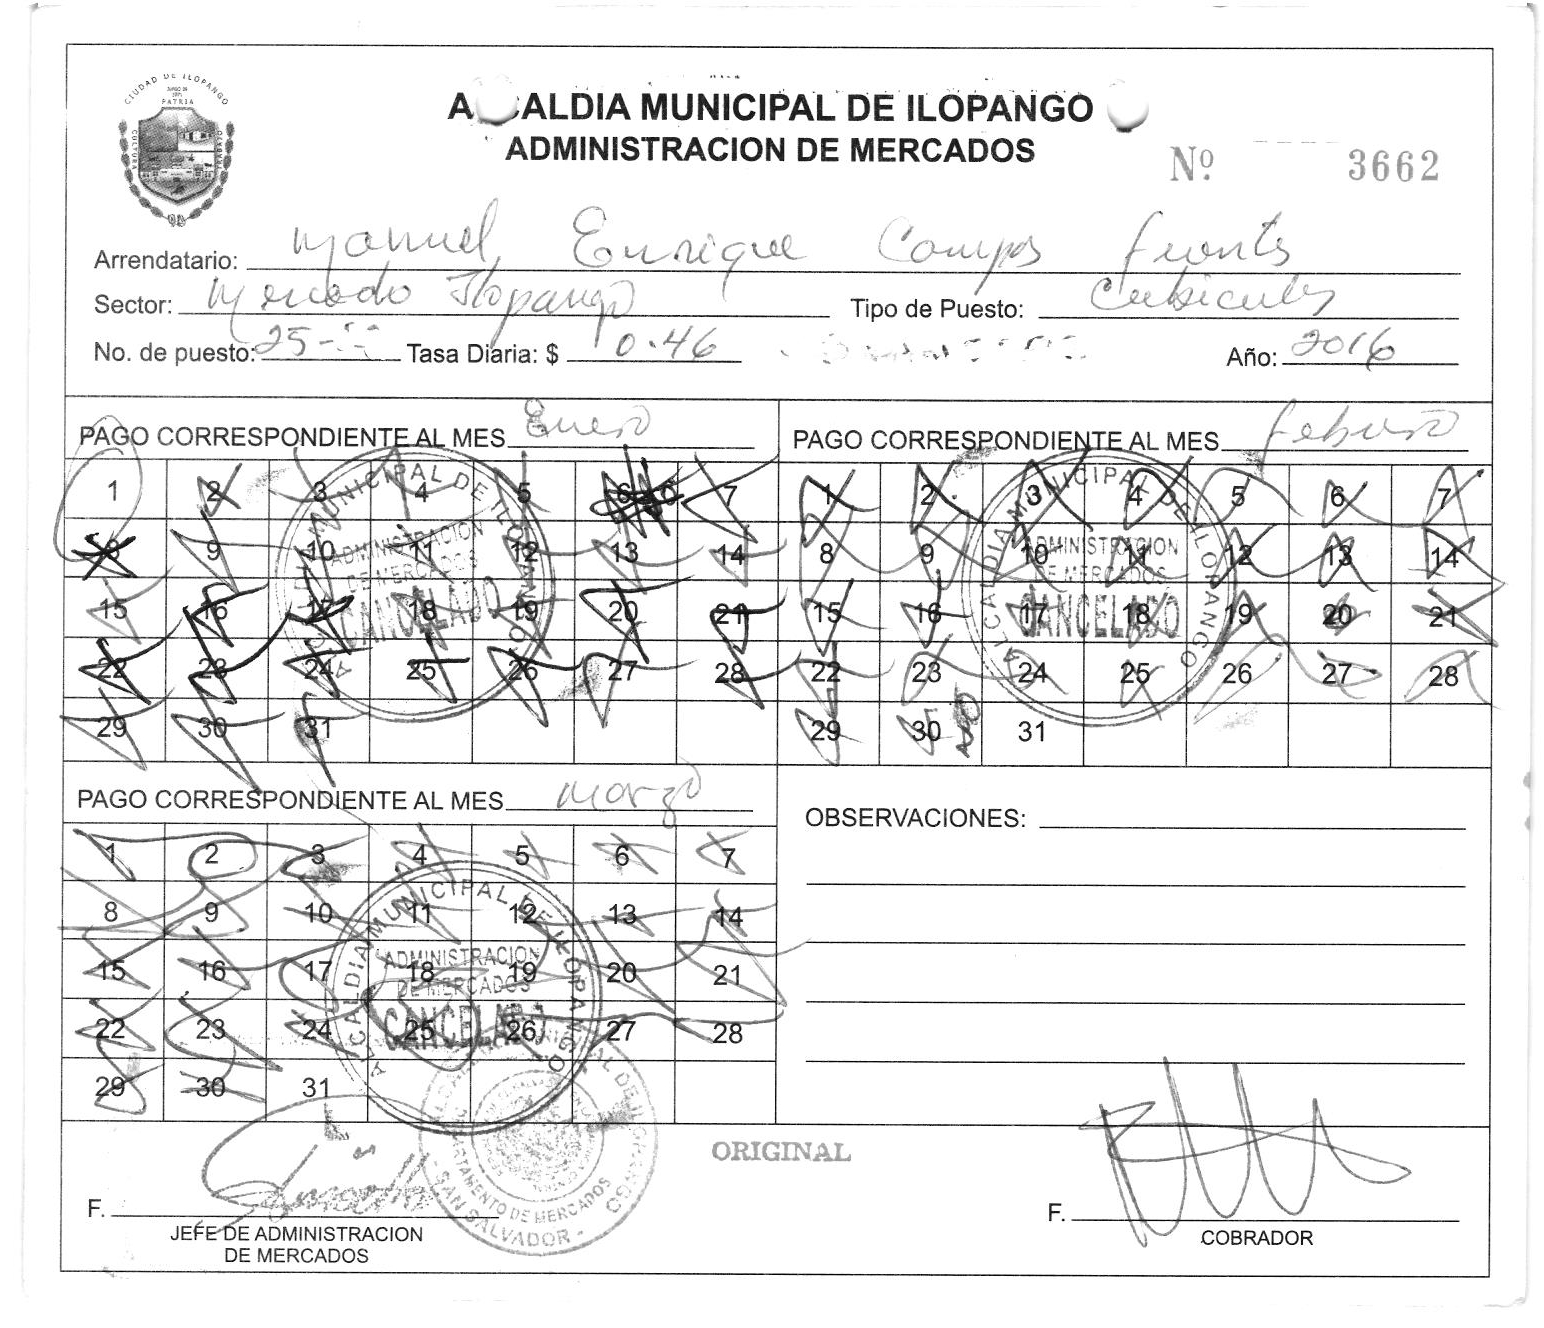 CIUDAD DE ILOPANGO
PATRIA
CULTURA
TRABAJO
ALCALDIA MUNICIPAL DE ILOPANGO
ADMINISTRACION DE MERCADOS
Nº 3662
Arrendatario: Manuel Enrique Campos Fuentes
Sector: Mercado Ilopango Tipo de Puesto: Cubiculos
No. de puesto: 25- Tasa Diaria: $ 0.46 Año: 2016
PAGO CORRESPONDIENTE AL MES Enero
1 2 3 4 5 6 7
8 9 10 11 12 13 14
15 16 17 18 19 20 21
22 23 24 25 26 27 28
29 30 31
ALCALDIA MUNICIPAL DE ILOPANGO
ADMINISTRACION
DE MERCADOS
CANCELADO
PAGO CORRESPONDIENTE AL MES Febrero
1 2 3 4 5 6 7
8 9 10 11 12 13 14
15 16 17 18 19 20 21
22 23 24 25 26 27 28
29 30 31
ALCALDIA MUNICIPAL DE ILOPANGO
ADMINISTRACION
DE MERCADOS
CANCELADO
PAGO CORRESPONDIENTE AL MES Marzo
1 2 3 4 5 6 7
8 9 10 11 12 13 14
15 16 17 18 19 20 21
22 23 24 25 26 27 28
29 30 31
ALCALDIA MUNICIPAL DE ILOPANGO
ADMINISTRACION
DE MERCADOS
CANCELADO
OBSERVACIONES:
ORIGINAL
DEPARTAMENTO DE MERCADOS
SAN SALVADOR
F.
JEFE DE ADMINISTRACION
DE MERCADOS
F.
COBRADOR